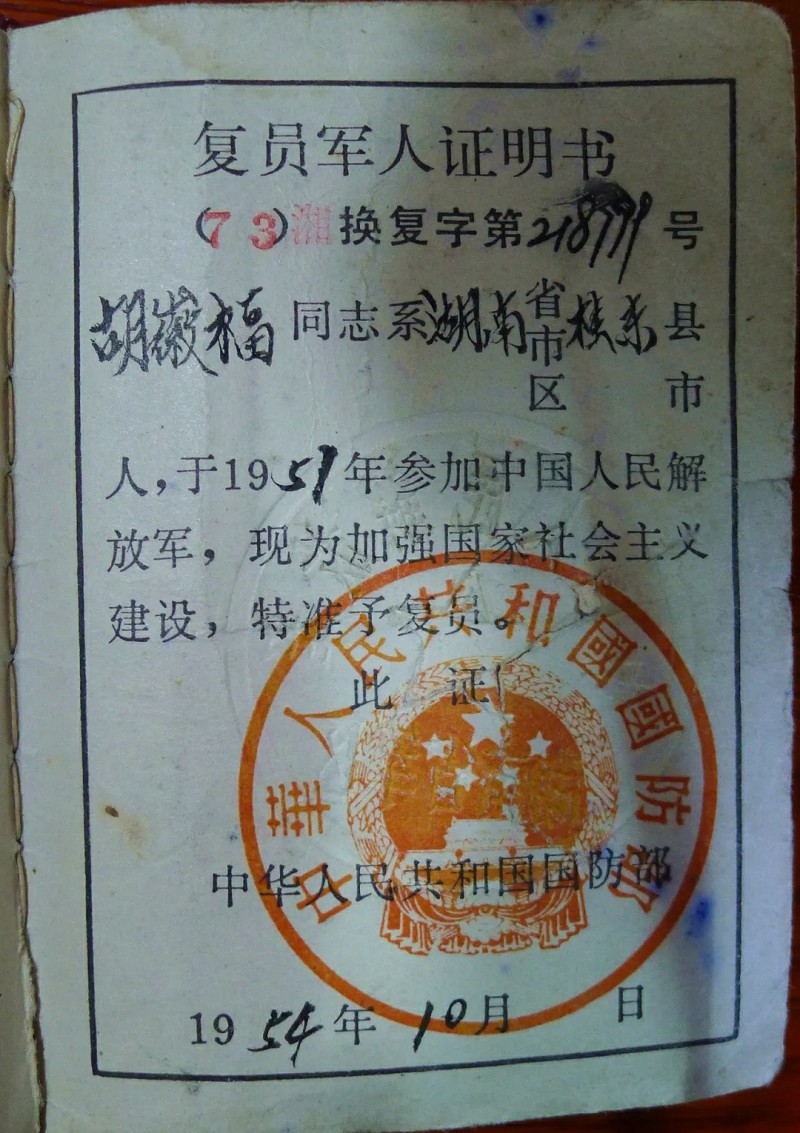 复员军人证明书
(73)湘换复字第218779号
胡薇福同志系湖南省市区桂东县市
人，于1951年参加中国人民解
放军，现为加强国家社会主义
建设，特准予复员。
此证
中华人民共和国国防部
1954年10月 日
中華人民共和國國防部